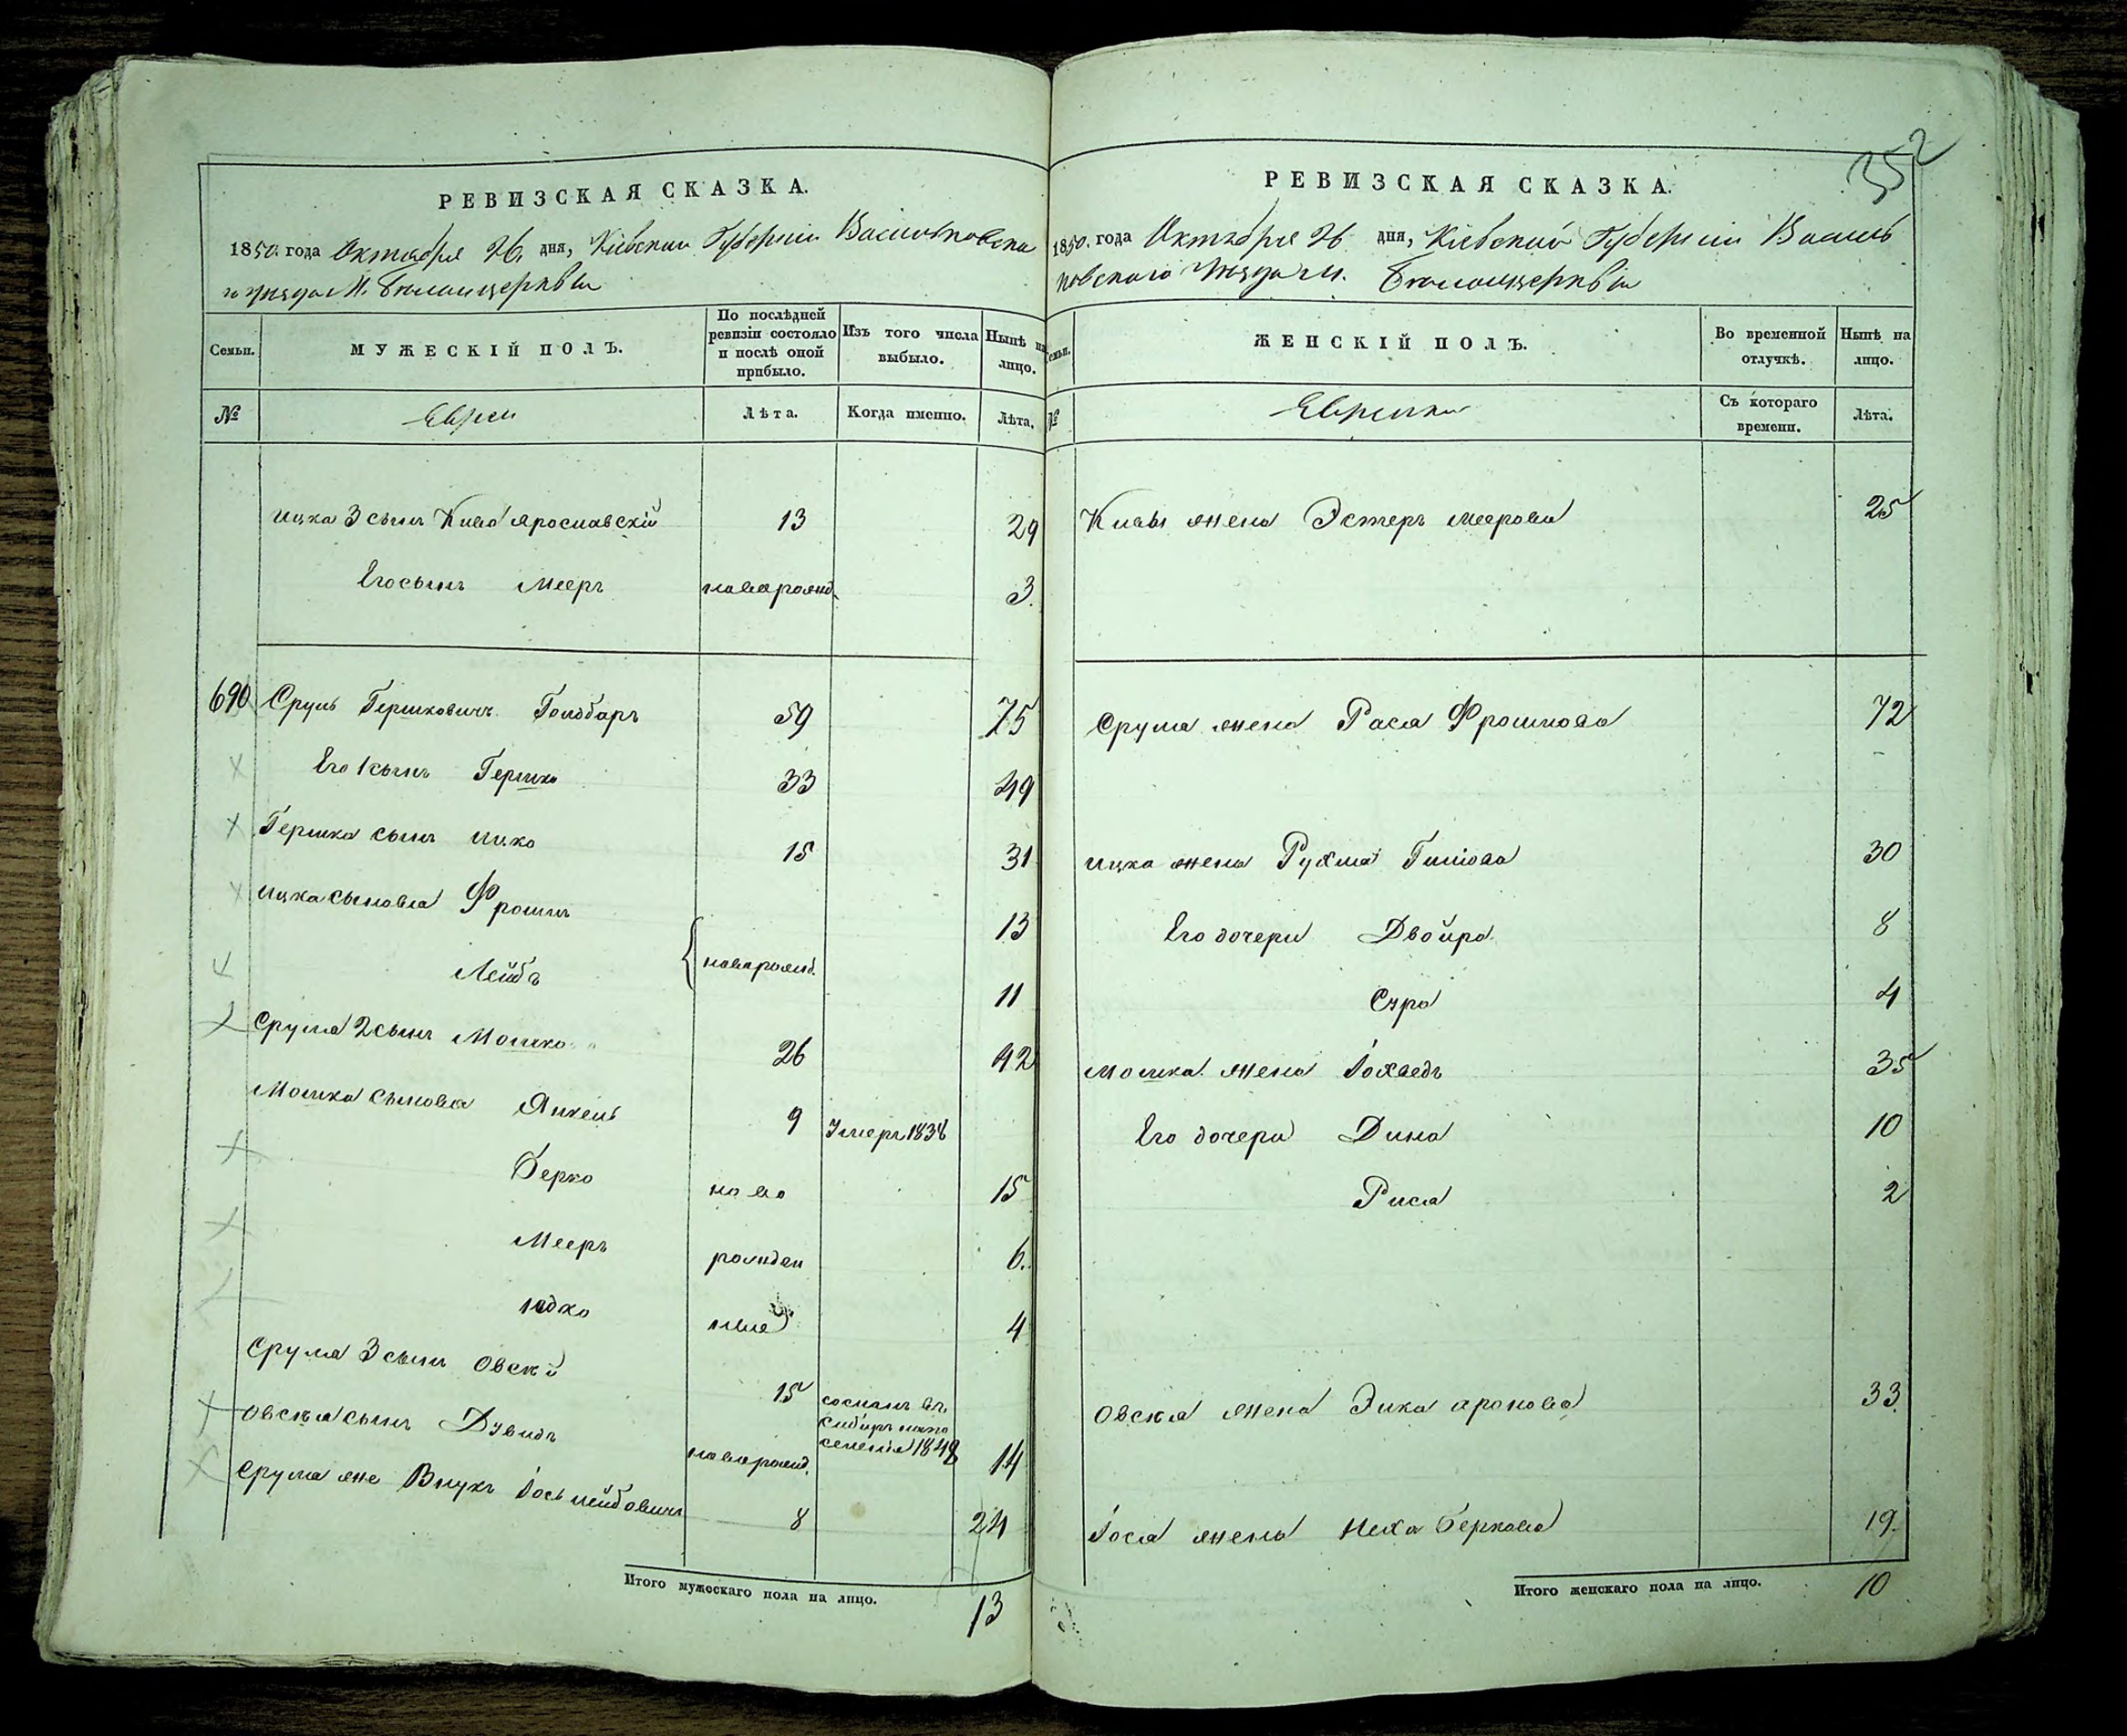 352
РЕВИЗСКАЯ СКАЗКА.
1850. года Октября 26. дня, Кіевской Губерніи Васильковска
го уѣзда М. Бѣлоцерквы
Семьи.
МУЖЕСКІЙ ПОЛЪ.
По послѣдней ревизіи состояло и послѣ оной прибыло.
Изъ того числа выбыло.
Нынѣ на лицо.
№
Евреи
Лѣта.
Когда именно.
Лѣта.
Ицка 3 сынъ Кива Ярославскій 13 29
Его сынъ Мееръ новорожд. 3.
690 Сруль Гершковичъ Гольдбаръ 59 75
Его 1 сынъ Гершко 33 49
Гершка сынъ Ицко 15 31
Ицка сыновья Фроимъ 13
Лейбъ новорожд. 11
Срула 2 сынъ Мошко 26 42
Мошка сыновья Янкель 9 Умеръ 1838
Берко ново 15
Мееръ рожден 6.
Юдко ные 4
Срула 3 сынъ Овсѣй 15 сосланъ въ Сибирь на по селеніе 1848
Овсѣя сынъ Дувидъ новорожд. 14
Срула же Внукъ Іось Лейбовичъ 8 24
Итого мужескаго пола на лицо. 13
РЕВИЗСКАЯ СКАЗКА.
1850. года Октября 26 дня, Кіевской Губерніи Василь
ковского уѣзда М. Бѣлоцерквы
Семьи.
ЖЕНСКІЙ ПОЛЪ.
Во временной отлучкѣ.
Нынѣ на лицо.
№
Еврейки
Съ котораго времени.
Лѣта.
Кивы жена Эстеръ Меерова 25
Срула жена Раса Фроимова 72
Ицка жена Рухля 30
Его дочери Двойра 8
Сура 4
Мошка жена Іохведъ 35
Его дочери Дина 10
Риса 2
Овсѣя жена Эйка Аронова 33.
Іося жена Неха Беркова 19.
Итого женскаго пола на лицо. 10